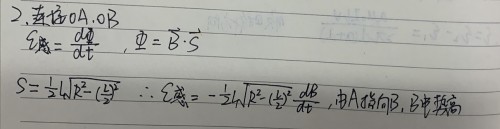 2. 连接OA、OB
ε感 = dΦ/dt , Φ = B⃗·S⃗
S = ½L√(R²-(L/2)²) ∴ ε感 = -½L√(R²-(L/2)²) dB/dt , 由A指向B, B电势高